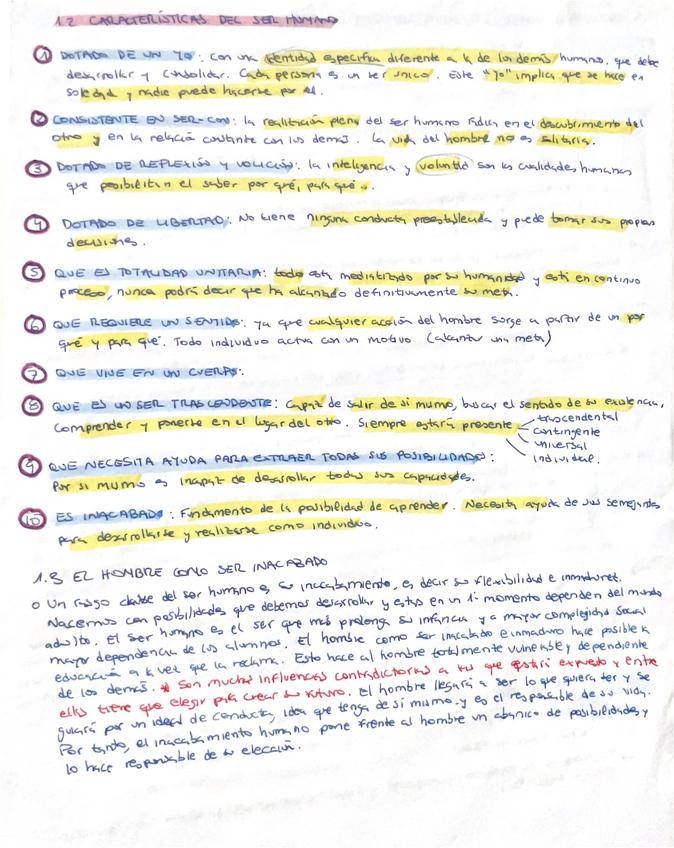 1.2 CARACTERÍSTICAS DEL SER HUMANO
1 DOTADO DE UN YO: con una identidad específica diferente a la de los demás humanos, que debe
desarrollar y consolidar. Cada persona es un ser único. Este "yo" implica que se hace en
soledad y nadie puede hacerse por él.
2 CONSISTENTE EN SER-CON: la realización plena del ser humano radica en el descubrimiento del
otro y en la relación constante con los demás. La vida del hombre no es solitaria.
3 DOTADO DE REFLEXIÓN Y VOLICIÓN: la inteligencia y voluntad son las cualidades humanas
que posibilitan el saber por qué, para qué.
4 DOTADO DE LIBERTAD: No tiene ninguna conducta preestablecida y puede tomar sus propias
decisiones.
5 QUE ES TOTALIDAD UNITARIA: todo está mediatizado por su humanidad y está en continuo
proceso, nunca podrá decir que ha alcanzado definitivamente su meta.
6 QUE REQUIERE UN SENTIDO: ya que cualquier acción del hombre surge a partir de un por
qué y para qué. Todo individuo actua con un motivo (alcanzar una meta)
7 QUE VIVE EN UN CUERPO:
8 QUE ES UN SER TRASCENDENTE: Capaz de salir de si mismo, buscar el sentido de su existencia,
comprender y ponerse en el lugar del otro. Siempre estará presente
trascendental
contingente
universal
individual.
9 QUE NECESITA AYUDA PARA EXTRAER TODAS SUS POSIBILIDADES:
Por si mismo es incapaz de desarrollar todas sus capacidades.
10 ES INACABADO: Fundamento de la posibilidad de aprender. Necesita ayuda de sus semejantes
para desarrollarse y realizarse como individuo.
1.3 EL HOMBRE COMO SER INACABADO
o Un rasgo clave del ser humano es su inacabamiento, es decir su flexibilidad e inmadurez.
Nacemos con posibilidades que debemos desarrollar y estas en un 1º momento dependen del mundo
adulto. El ser humano es el ser que más prolonga su infancia y a mayor complejidad social
mayor dependencia de los alumnos. El hombre como ser inacabado e inmaduro hace posible la
educación a la vez que la reclama. Esto hace al hombre totalmente vulnerable y dependiente
de los demás. * Son muchas influencias contradictorias a las que estará expuesto y entre
ellas tiene que elegir para crear su futuro. El hombre llegará a ser lo que quiera ser y se
guiará por un ideal de conducta, idea que tenga de sí mismo y es el responsable de su vida.
Por tanto, el inacabamiento humano pone frente al hombre un abanico de posibilidades y
lo hace responsable de su elección.